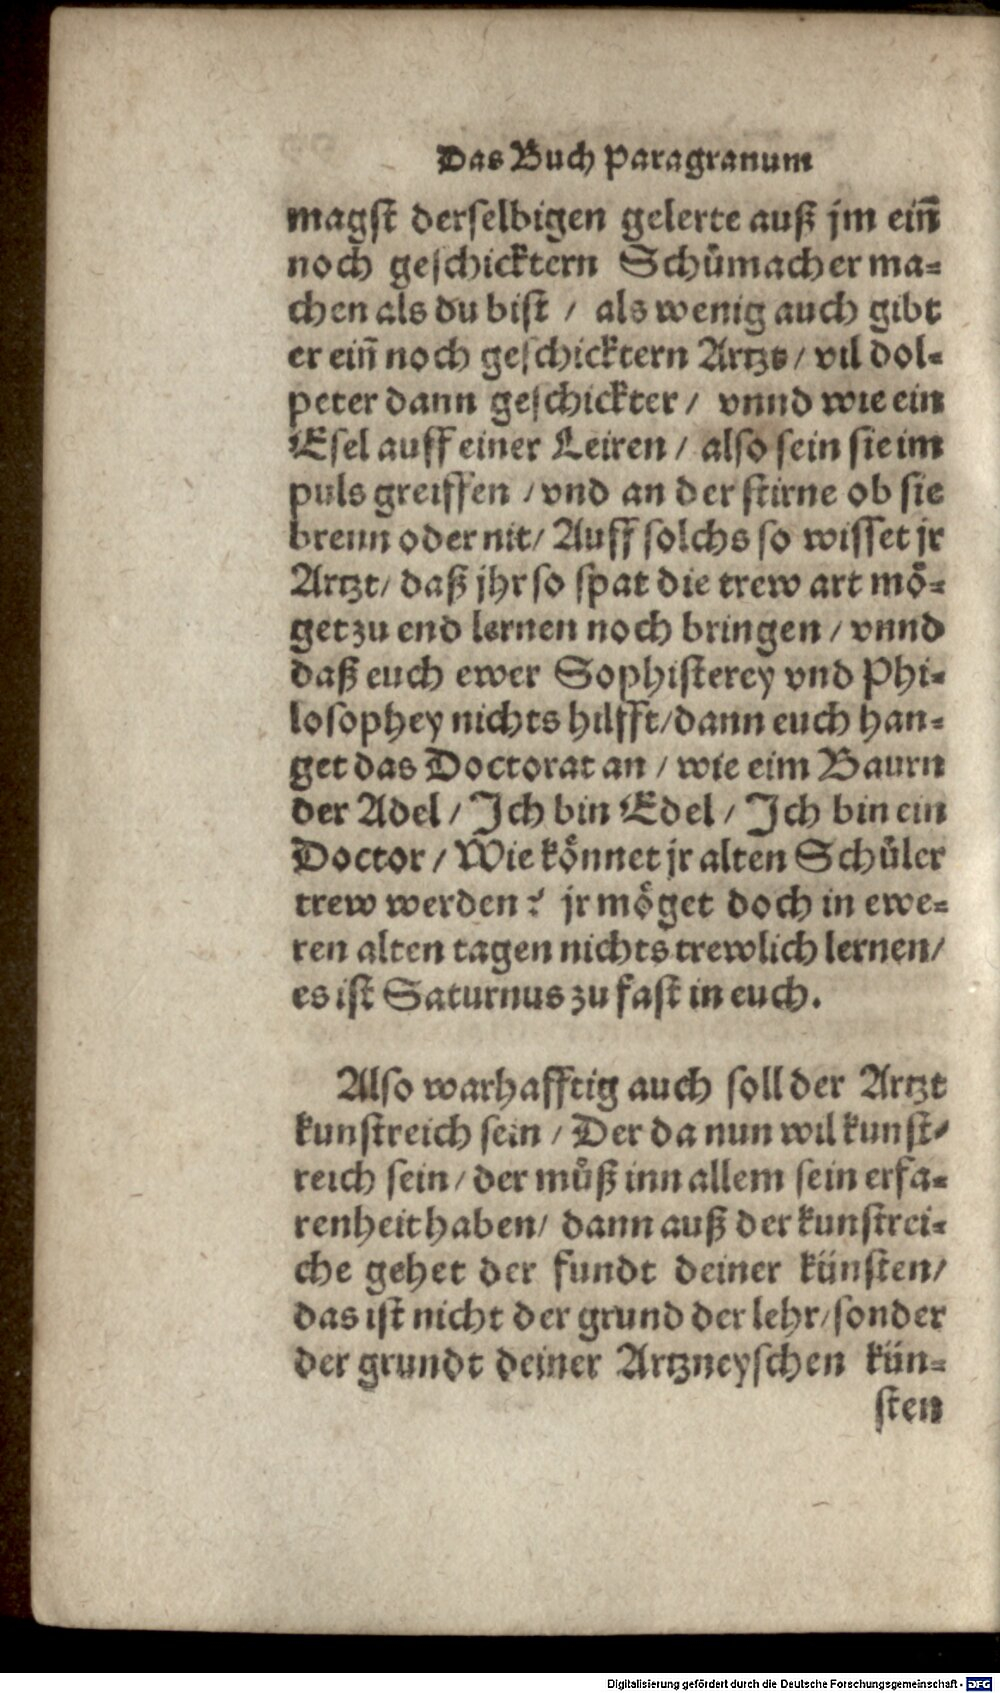 Das Buch Paragranum
magst derselbigen gelerte auß jm eiñ
noch geschicktern Schůmacher ma-
chen als du bist / als wenig auch gibt
er eiñ noch geschicktern Artzs / vil dol-
peter dann geschickter / vnnd wie ein
Esel auff einer Leiren / also sein sie im
puls greiffen / vnd an der stirne ob sie
brenn oder nit / Auff solchs so wisset jr
Artzt / daß jhr so spat die trew art mö-
get zu end lernen noch bringen / vnnd
daß euch ewer Sophisterey vnd Phi-
losophey nichts hilfft / dann euch han-
get das Doctorat an / wie eim Baurn
der Adel / Ich bin Edel / Ich bin ein
Doctor / Wie könnet jr alten Schůler
trew werden? jr möget doch in ewe-
ren alten tagen nichts trewlich lernen /
es ist Saturnus zu fast in euch.
Also warhafftig auch soll der Artzt
kunstreich sein / Der da nun wil kunst-
reich sein / der můß inn allem sein erfa-
renheit haben / dann auß der kunstrei-
che gehet der fundt deiner künsten /
das ist nicht der grund der lehr / sonder
der grundt deiner Artzneyschen kün-
sten
Digitalisierung gefördert durch die Deutsche Forschungsgemeinschaft - DFG